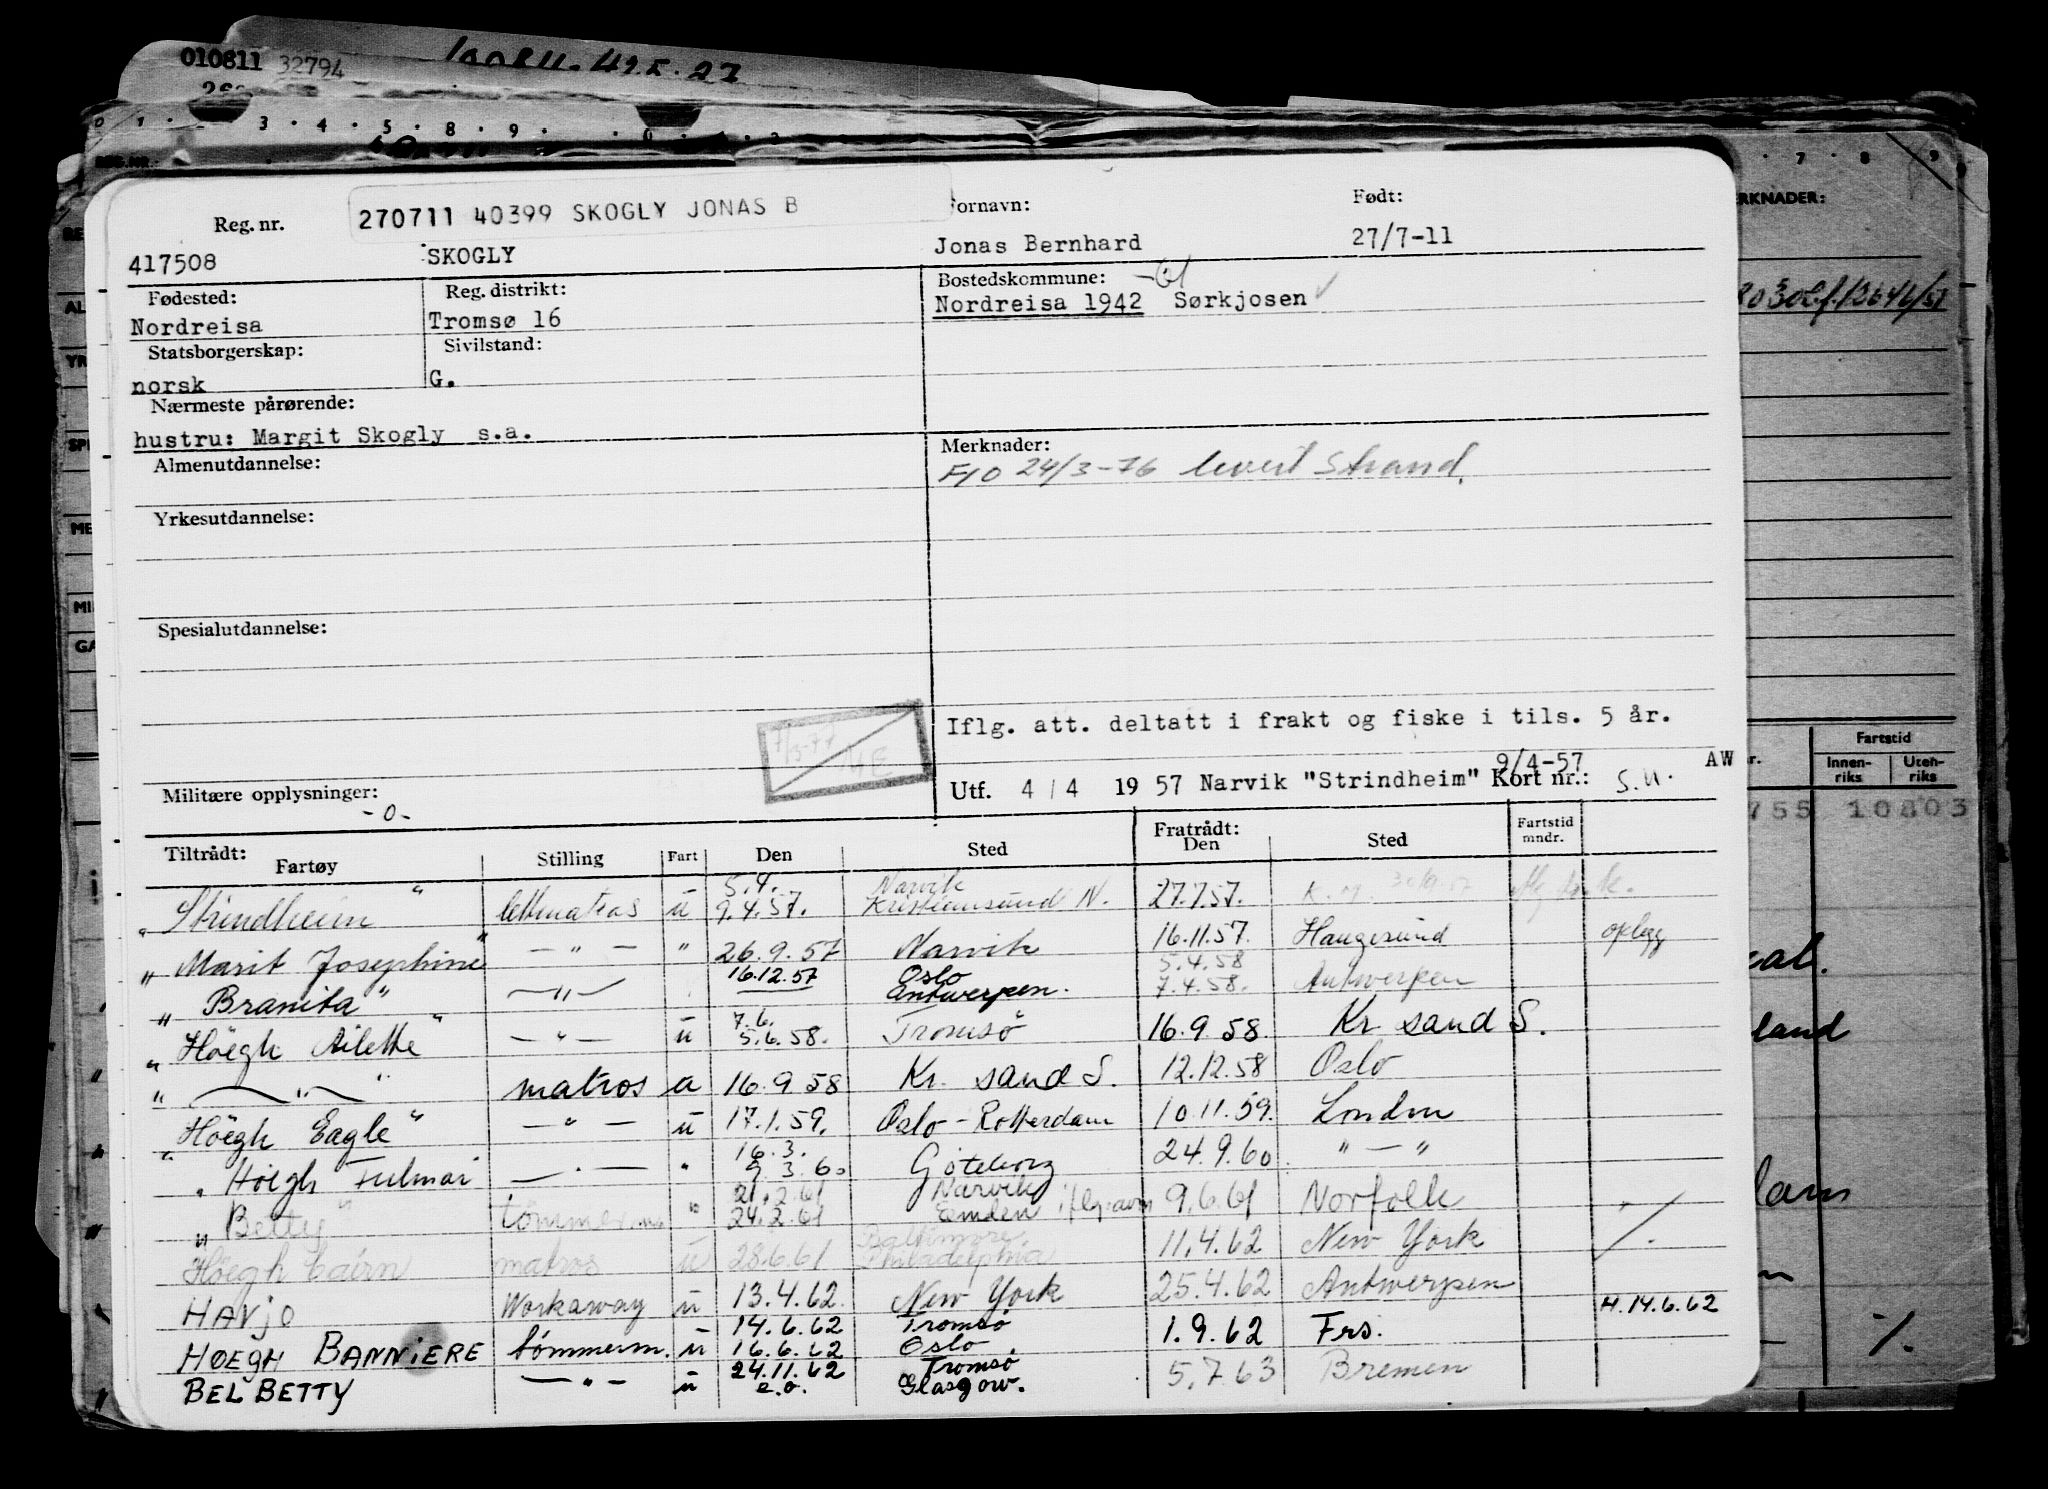 010811 32794
270711 40399 SKOGLY JONAS B
Reg. nr.
Fornavn:
Født:
417508 SKOGLY Jonas Bernhard 27/7-11
Fødested: Reg. distrikt: Bostedskommune: -61
Nordreisa Tromsø 16 Nordreisa 1942 Sørkjosen
Statsborgerskap: Sivilstand:
norsk G.
Nærmeste pårørende:
hustru: Margit Skogly s.a.
Almenutdannelse: Merknader:
F/O 24/3-76 levert Strand.
Yrkesutdannelse:
Spesialutdannelse:
Iflg. att. deltatt i frakt og fiske i tils. 5 år.
9/4-57 AW
Militære opplysninger: Utf. 4/4 1957 Narvik "Strindheim" Kort nr.: S.U.
-o-
Tiltrådt: Fartøy Stilling Fart Den Sted Fratrådt: Den Sted Fartstid mndr.
5.4. Narvik
"Strindheim" lettmatros u 9.4.57. Kristiansund N. 27.7.57.
"Marit Josephine" — " — " 26.9.57 Narvik 16.11.57. Haugesund oplegg
16.12.57 Oslo 5.4.58
"Branita" — " — Antwerpen. 7.4.58. Antwerpen
7.6.
"Höegh Ailette" — " — u 5.6.58. Tromsø 16.9.58. Kr sand S.
" — " — " matros u 16.9.58 Kr. sand S. 12.12.58 Oslo
"Höegh Eagle" — " — u 17.1.59. Oslo - Rotterdam 10.11.59. London
16.3.
"Höegh Fulmar — " — " 9.3.60 Göteborg 24.9.60. " — "
21.2.61 Narvik
"Betty" tømmerm. " 24.2.61 Emden iflg. avm 9.6.61 Norfolk
Baltimore
Höegh Cairn matros u 28.6.61 Philadelphia 11.4.62 New York
HAVJO Workaway u 13.4.62. New York 25.4.62 Antwerpen
14.6.62 Tromsø H. 14.6.62
HØEGH BANNIERE tømmerm. u 16.6.62 Oslo 1.9.62 Frs.
24.11.62 Tromsø
BEL BETTY — " — u e.o. Glasgow. 5.7.63 Bremen
RKNADER:
Fartstid
Innenriks Utenriks
755 10803
land